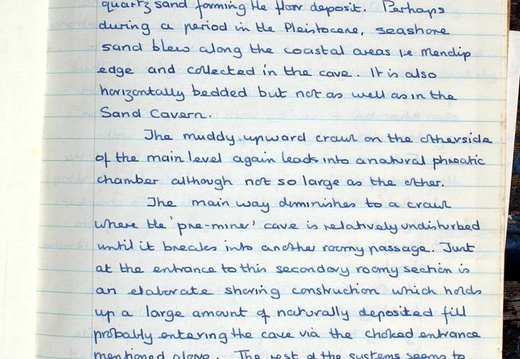 quartz sand forming the floor deposit. Perhaps
during a period in the Pleistocene, seashore
sand blew along the coastal areas i.e Mendip
edge and collected in the cave. It is also
horizontally bedded but not as well as in the
Sand Cavern.
The muddy, upward crawl on the otherside
of the main level again leads into a natural phreatic
chamber although not so large as the other.
The main way diminishes to a crawl
where the 'pre-mine' cave is relatively undisturbed
until it breaks into another roomy passage. Just
at the entrance to this secondary roomy section is
an elaborate shoring construction which holds
up a large amount of naturally deposited fill
probably entering the cave via the choked entrance
mentioned above. The rest of the systems seems to